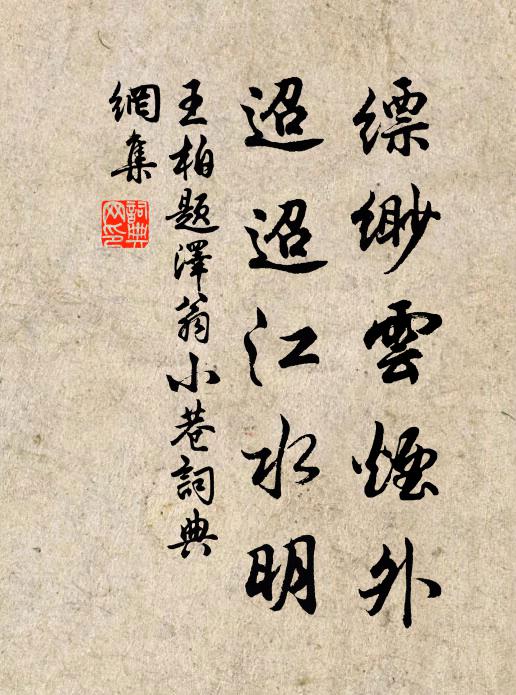 縹緲雲煙外
迢迢江水明
王柏題澤翁小巷詞典
網集
詞典
网印